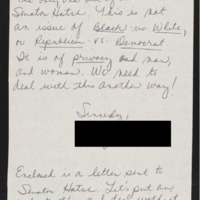 Senator Hatch. This is not
an issue of Black vs. White,
or Republican -vs- Democrat
It is of privacy and man,
and woman. We need to
deal with this another way!
Sincerely,
Enclosed is a letter sent to
Senator Hatch. Let's put an